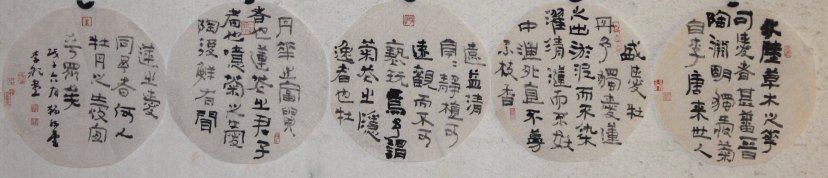 水陸草木之華
可愛者甚蕃晉
陶淵明獨愛菊
自李唐來世人
盛愛牡
丹予獨愛蓮
之出淤泥而不染
濯清漣而不妖
中通外直不蔓
不枝香
遠益清
亭亭靜植可
遠觀而不可
褻玩焉予謂
菊花之隱
逸者也牡
丹華之富貴
者也蓮花之君子
者也噫菊之愛
陶後鮮有聞
蓮之愛
同予者何人
牡丹之愛宜
乎眾矣